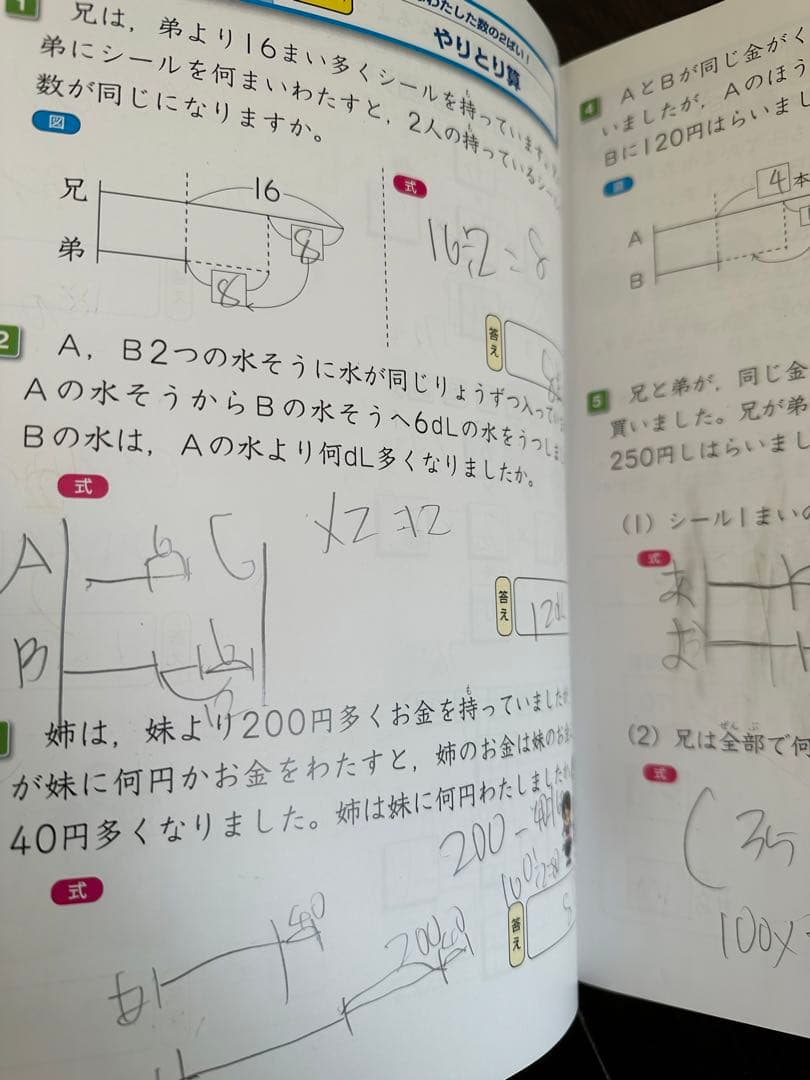 わたした数の2ばい!
やりとり算
1 兄は，弟より16まい多くシールを持っています。
弟にシールを何まいわたすと，2人の持っているシール
数が同じになりますか。
図
式
兄
弟
16
8
8
16÷2=8
答え
8
2 A，B2つの水そうに水が同じりょうずつ入って
Aの水そうからBの水そうへ6dLの水をうつしま
Bの水は，Aの水より何dL多くなりましたか。
式
A
6
×2=12
B
6
12
答え
12dL
姉は，妹より200円多くお金を持っていました
が妹に何円かお金をわたすと，姉のお金は妹のお金
40円多くなりました。姉は妹に何円わたしました
200-40
160÷2=
式
40
200
40
答え
4 AとBが同じ金がく
いましたが，Aのほう
Bに120円はらいまし
図
4本
A
B
5 兄と弟が，同じ金
買いました。兄が弟
250円しはらいまし
(1) シール1まいの
式
(2) 兄は全部で何
式
(35
100×